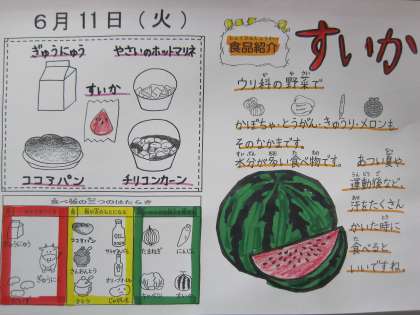 6月11日（火）
ぎゅうにゅう
やさいのホットマリネ
すいか
ココアパン
チリコンカーン
食べ物の三つのはたらき
ぎゅうにゅう
ココアパン
たまねぎ
にんじん
じゃがいも
食品紹介
すいか
ウリ科の野菜で
かぼちゃ・とうがん・きゅうり・メロンも
そのなかまです。
水分が多い食べ物です。
あつい夏や
運動後など、
汗をたくさん
かいた時に
食べると
いいですね。